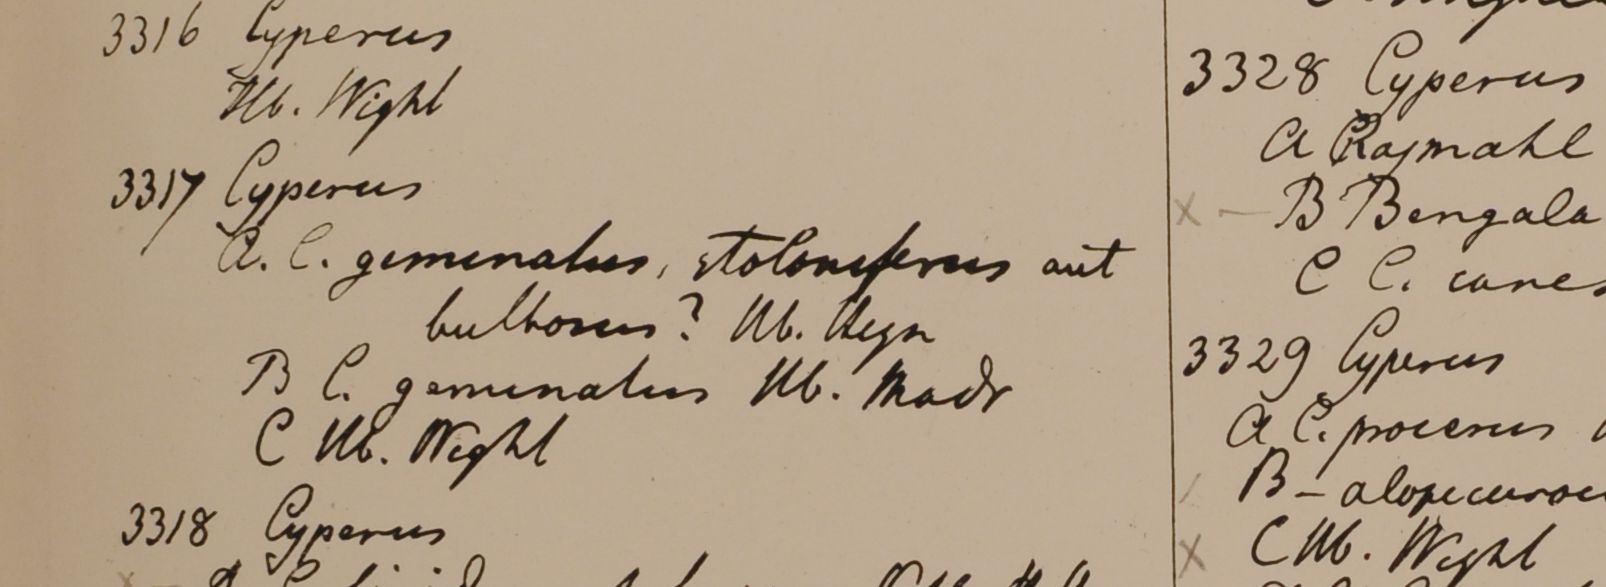 3316 Cyperus
Hb. Wight
3317 Cyperus
A. C. geminatus, stoloniferus aut
bulbosus? Hb. Heyn
B C. geminatus Hb. Madr
C Hb. Wight
3318 Cyperus
3328 Cyperus
A Rajmahl
x — B Bengala
C C. canes
3329 Cyperus
A C. procerus
B - alopecuroi
x C Hb. Wight